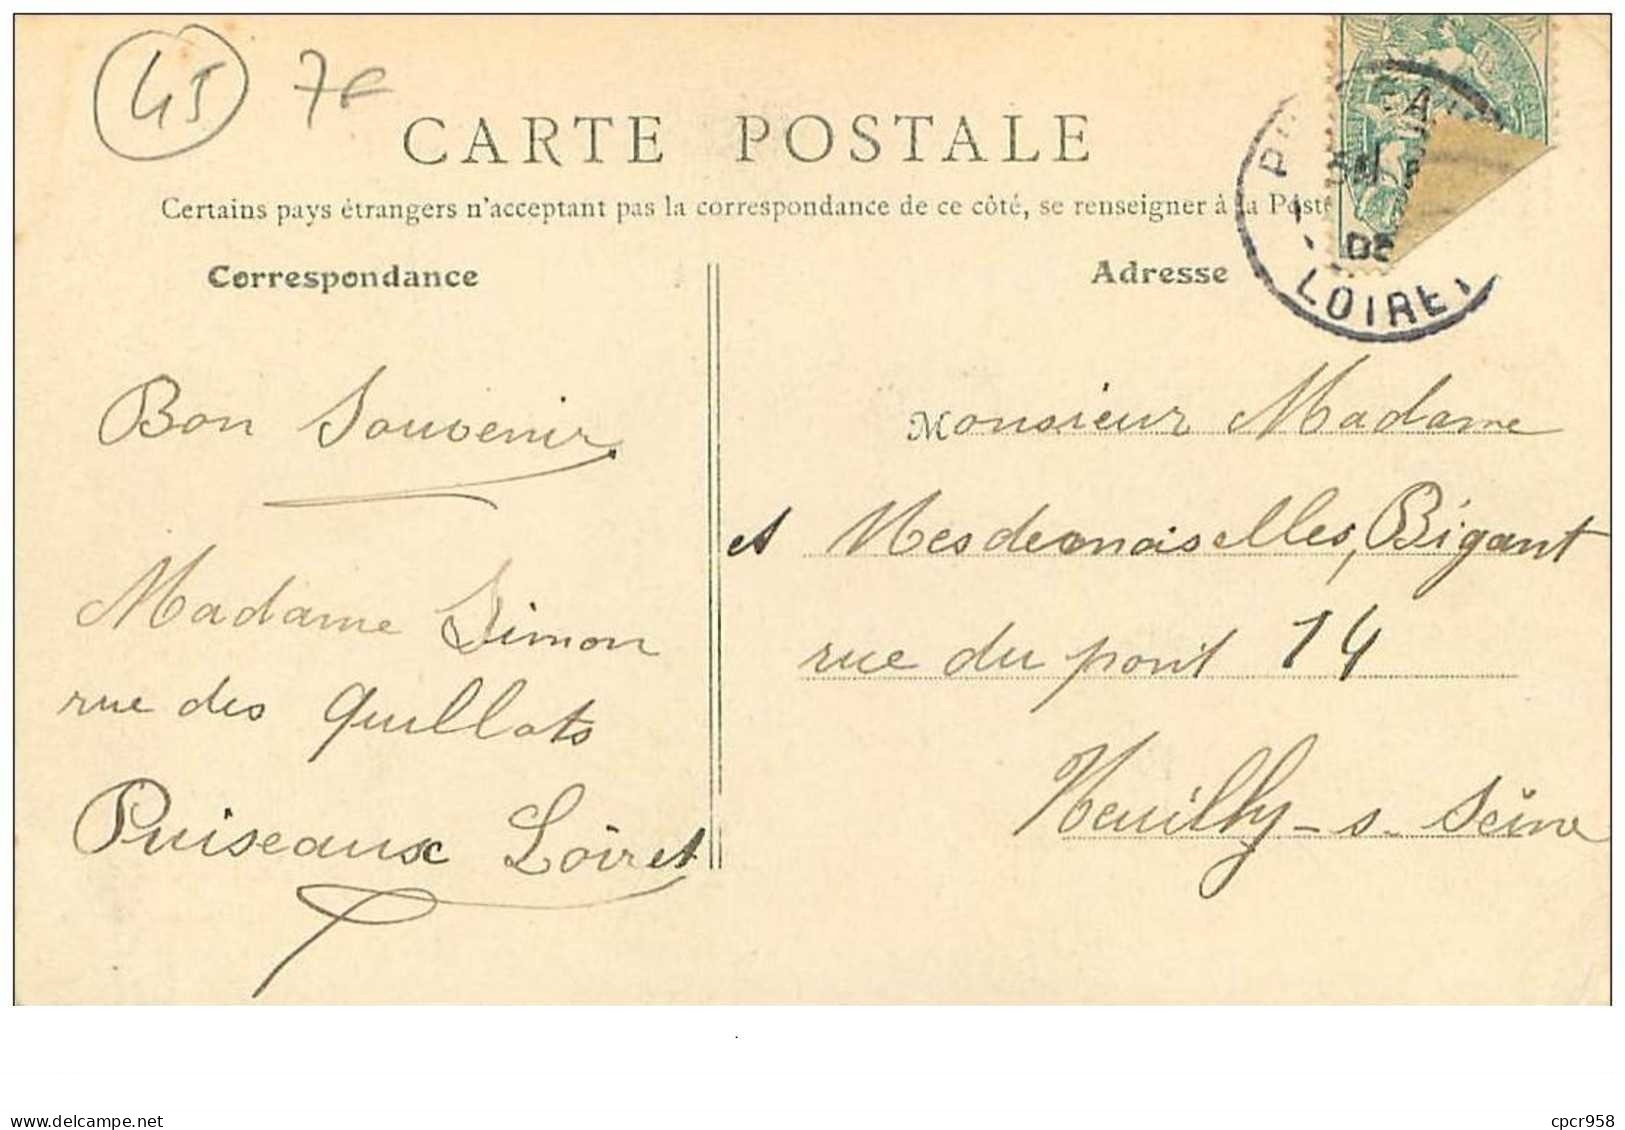 45 7F
CARTE POSTALE
Certains pays étrangers n'acceptant pas la correspondance de ce côté, se renseigner à la Poste
Correspondance
Bon Souvenir
Madame Simon
rue des Guillots
Puiseaux Loiret
Adresse
LOIRET
Monsieur Madame
et Mesdemoiselles, Bigant
rue du pont 14
Neuilly-s-Seine
www.delcampe.net
cpcr958